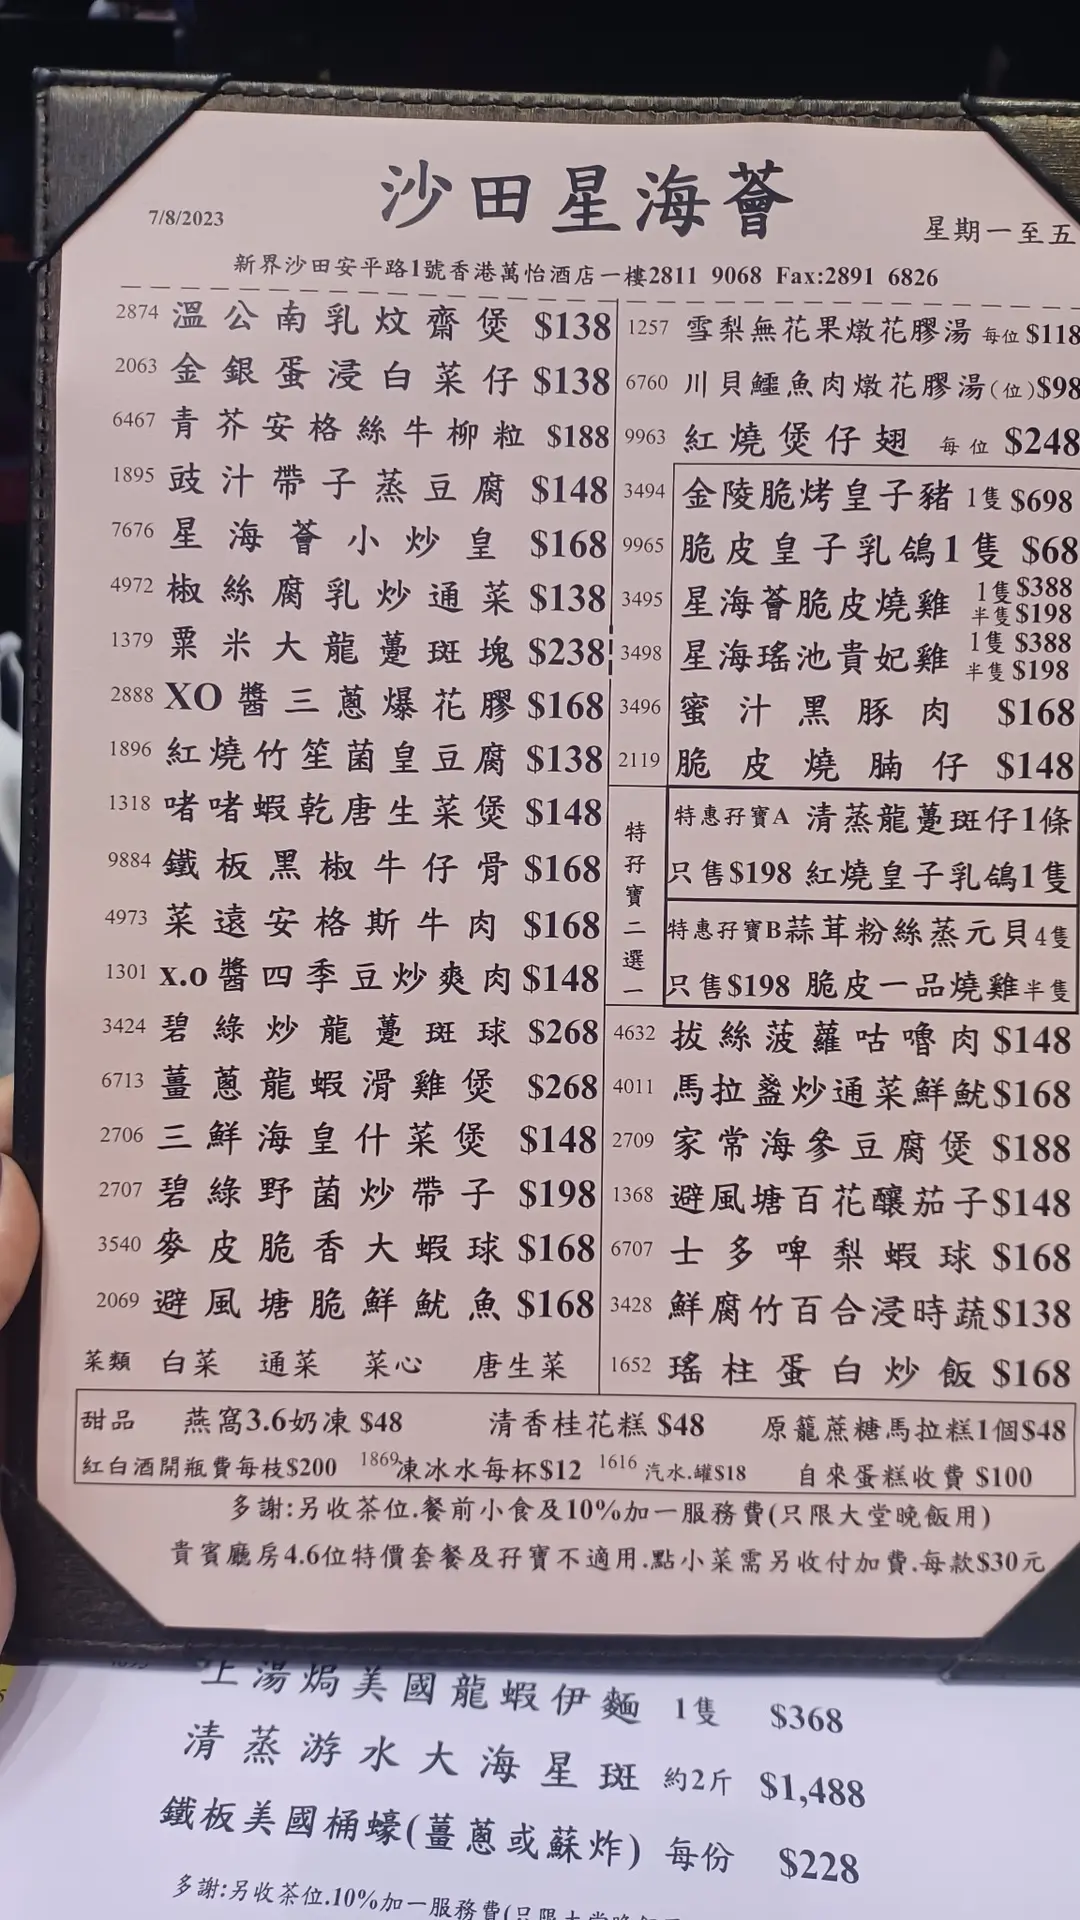 沙田星海薈
7/8/2023
星期一至五
新界沙田安平路1號香港萬怡酒店一樓2811 9068 Fax:2891 6826
2874 溫公南乳炆齋煲 $138
2063 金銀蛋浸白菜仔 $138
6467 青芥安格絲牛柳粒 $188
1895 豉汁帶子蒸豆腐 $148
7676 星海薈小炒皇 $168
4972 椒絲腐乳炒通菜 $138
1379 粟米大龍躉斑塊 $238
2888 XO醬三蔥爆花膠 $168
1896 紅燒竹笙菌皇豆腐 $138
1318 啫啫蝦乾唐生菜煲 $148
9884 鐵板黑椒牛仔骨 $168
4973 菜遠安格斯牛肉 $168
1301 x.o醬四季豆炒爽肉 $148
3424 碧綠炒龍躉斑球 $268
6713 薑蔥龍蝦滑雞煲 $268
2706 三鮮海皇什菜煲 $148
2707 碧綠野菌炒帶子 $198
3540 麥皮脆香大蝦球 $168
2069 避風塘脆鮮魷魚 $168
菜類 白菜 通菜 菜心 唐生菜
1257 雪梨無花果燉花膠湯 每位 $118
6760 川貝鱷魚肉燉花膠湯(位) $98
9963 紅燒煲仔翅 每位 $248
3494 金陵脆烤皇子豬 1隻 $698
9965 脆皮皇子乳鴿1隻 $68
3495 星海薈脆皮燒雞 1隻 $388
半隻 $198
3498 星海瑤池貴妃雞 1隻 $388
半隻 $198
3496 蜜汁黑豚肉 $168
2119 脆皮燒腩仔 $148
特孖寶二選一
特惠孖寶A 清蒸龍躉斑仔1條
只售$198 紅燒皇子乳鴿1隻
特惠孖寶B 蒜茸粉絲蒸元貝4隻
只售$198 脆皮一品燒雞半隻
4632 拔絲菠蘿咕嚕肉 $148
4011 馬拉盞炒通菜鮮魷 $168
2709 家常海參豆腐煲 $188
1368 避風塘百花釀茄子 $148
6707 士多啤梨蝦球 $168
3428 鮮腐竹百合浸時蔬 $138
1652 瑤柱蛋白炒飯 $168
甜品 燕窩3.6奶凍 $48 清香桂花糕 $48 原籠蔗糖馬拉糕1個$48
紅白酒開瓶費每枝$200 1869凍冰水每杯$12 1616 汽水.罐$18 自來蛋糕收費 $100
多謝:另收茶位.餐前小食及10%加一服務費(只限大堂晚飯用)
貴賓廳房4.6位特價套餐及孖寶不適用.點小菜需另收付加費.每款$30元
上湯焗美國龍蝦伊麵 1隻 $368
清蒸游水大海星斑 約2斤 $1,488
鐵板美國桶蠔(薑蔥或蘇炸) 每份 $228
多謝:另收茶位.10%加一服務費(只限大堂晚飯